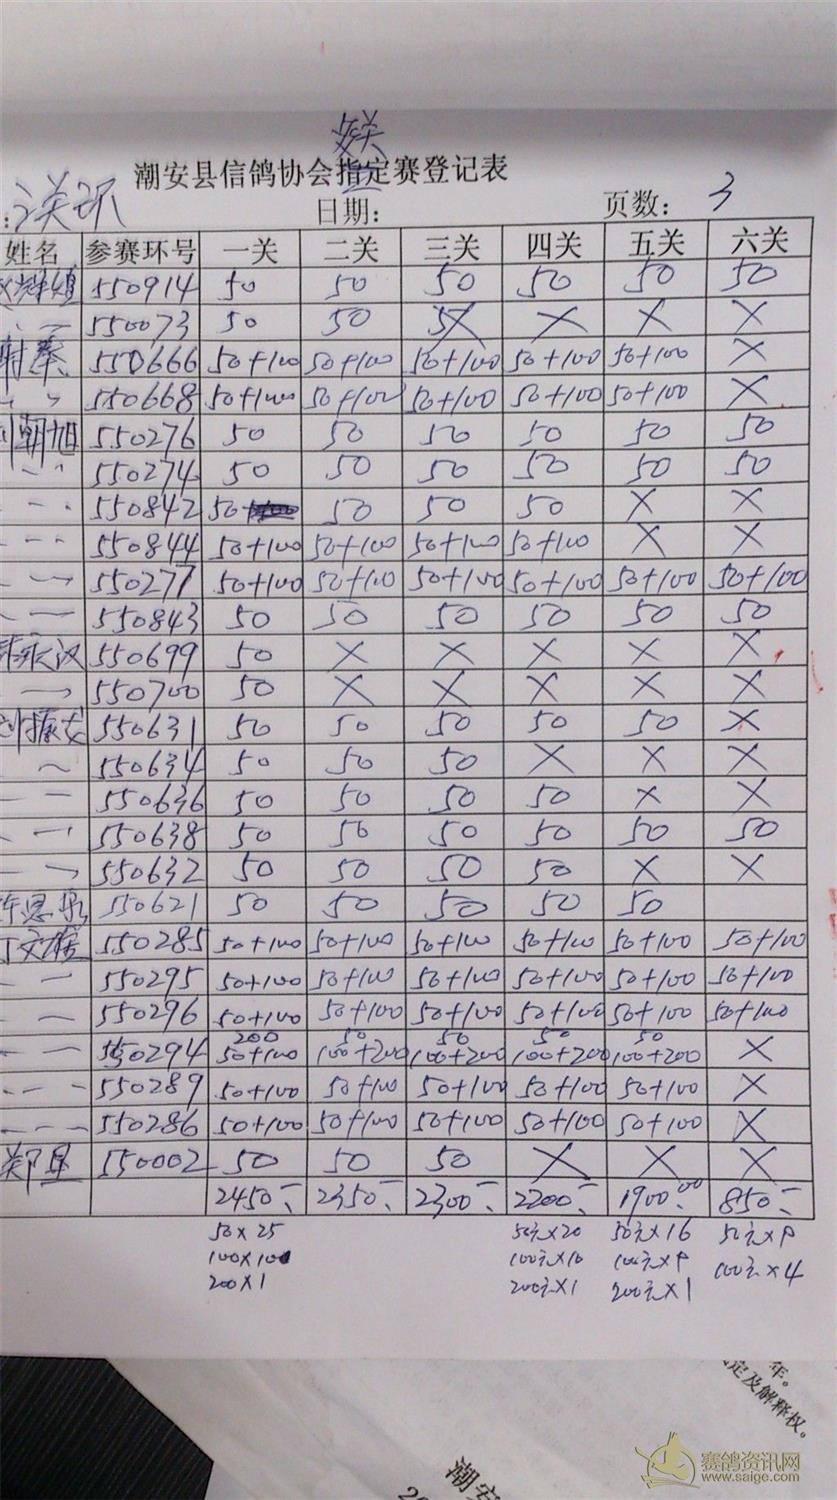 关
潮安县信鸽协会指定赛登记表
日期: 页数: 3
姓名 参赛环号 一关 二关 三关 四关 五关 六关
550914 50 50 50 50 50 50
550073 50 50 50 X X X X
550666 50+100 50+100 50+100 50+100 50+100 X
550668 50+100 50+100 50+100 50+100 50+100 X
朝旭 550276 50 50 50 50 50 50
550274 50 50 50 50 50 50
550842 50 50 50 50 X X
550844 50+100 50+100 50+100 50+100 X X
550277 50+100 50+100 50+100 50+100 50+100 50+100
550843 50 50 50 50 50 50
550699 50 X X X X X
550700 50 X X X X X
550631 50 50 50 50 50 X
550634 50 50 50 X X X
550636 50 50 50 50 X X
550638 50 50 50 50 50 50
550632 50 50 50 50 X X
550621 50 50 50 50 50
550285 50+100 50+100 50+100 50+100 50+100 50+100
550295 50+100 50+100 50+100 50+100 50+100 50+100
550296 50+100 50+100 50+100 50+100 50+100 50+100
200 50 50 50 50
550294 50+100 100+200 100+200 100+200 100+200 X
550289 50+100 50+100 50+100 50+100 50+100 X
550286 50+100 50+100 50+100 50+100 50+100 X
550002 50 50 50 X X X
2450 2350 2300 2200 1900.00 850
50×25 50元×20 50元×16 50元×9
100×10 100元×10 100元×9 100元×4
200×1 200元×1 200元×1
年。
定及解释权。
潮安
赛鸽资讯网
www.saige.com